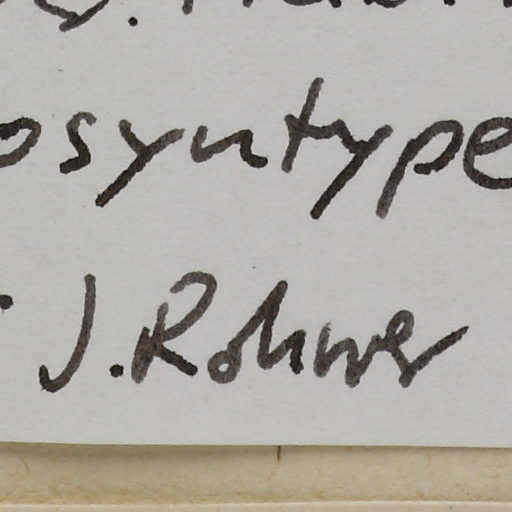 osyntype
. J. Rohwer